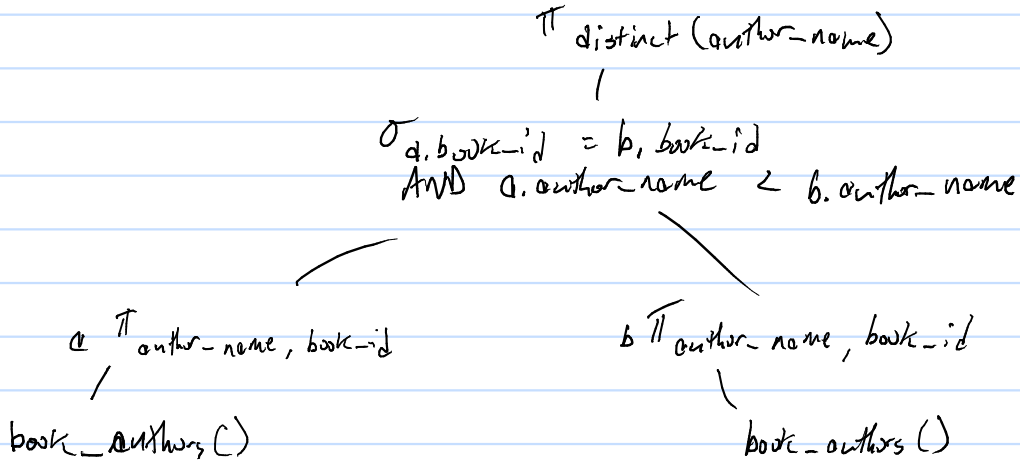 π distinct (author_name)
σ a.book_id = b.book_id
AND a.author_name < b.author_name
a π author_name, book_id
b π author_name, book_id
book_authors()
book_authors()